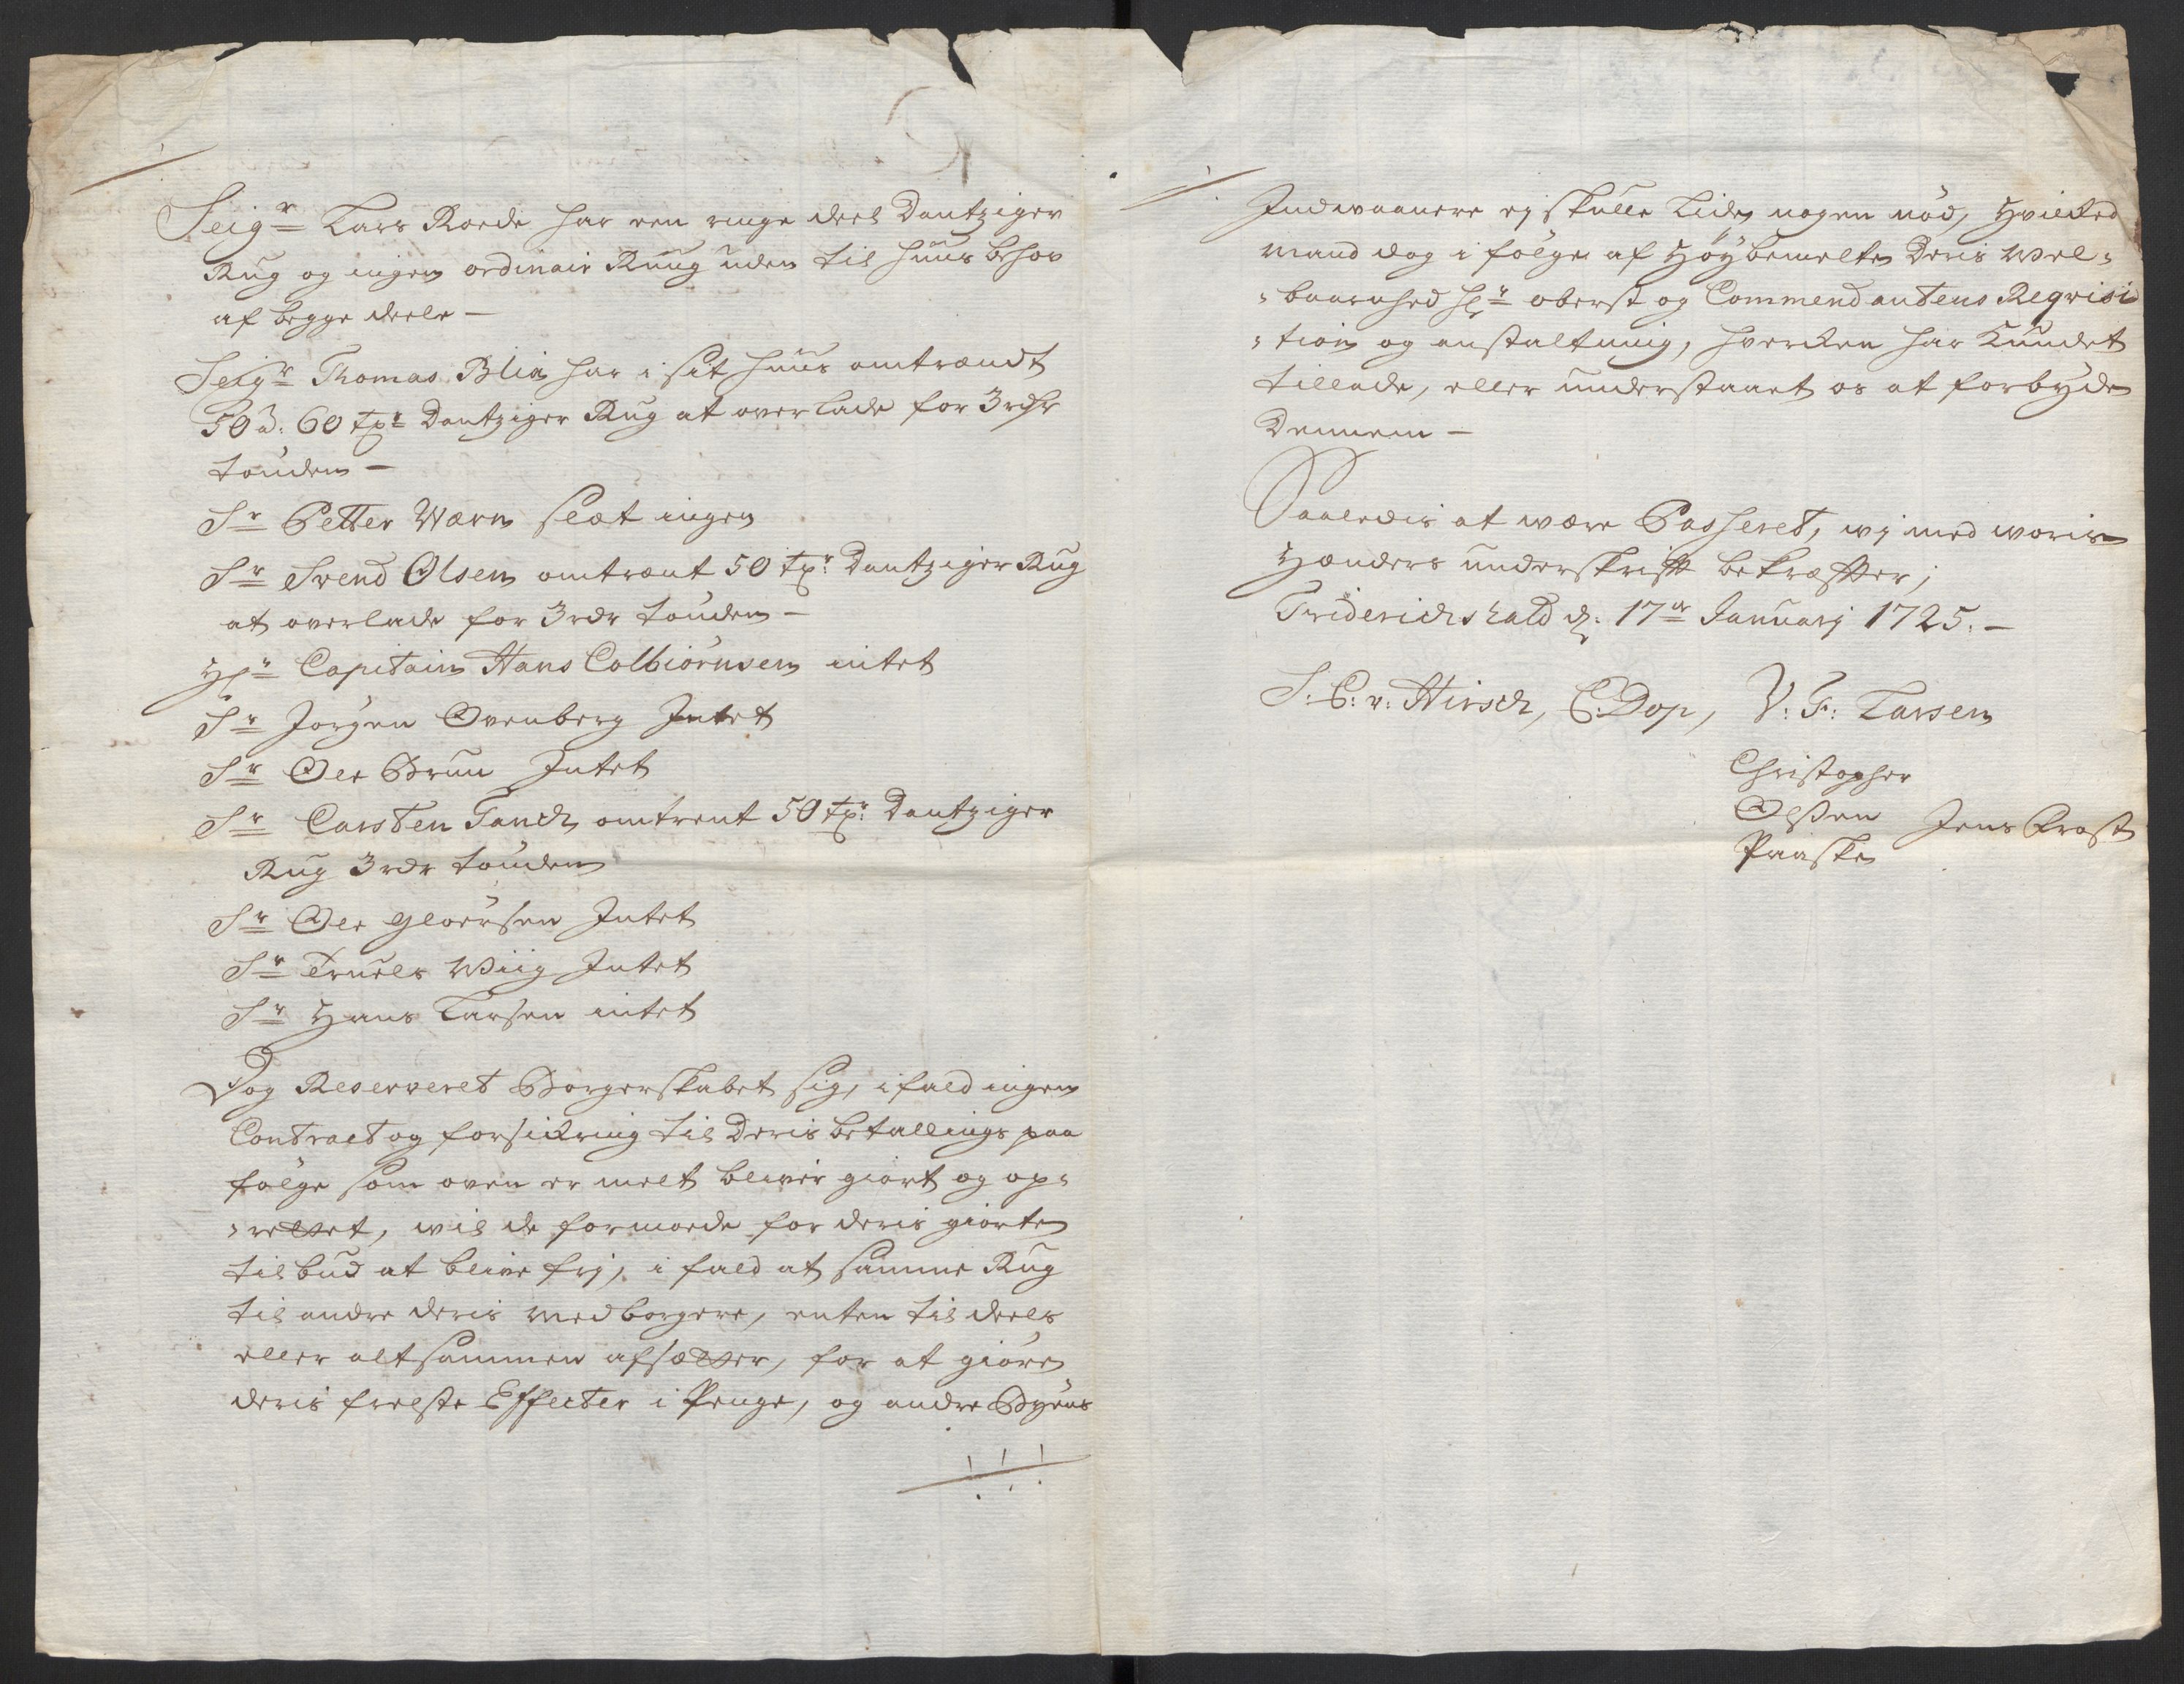 Seigr Lars Roede har een ringe deel Dantziger
Rug og ingen ordinair Ruug uden til huus behov
af begge deele —
Seigr Thomas Blix har i sit huus omtrændt
50 à: 60 tr Dantziger Rug at overlade for 3 rdr
tønden —
Sr Petter Wærn slæt ingen
Sr Svend Olsen omtrænt 50 tr: Dantziger Rug
at overlade for 3 rdr tønden —
Hr Capitain Hans Colbiörnsen intet
Sr Jørgen Ovenberg Intet
Sr Ole Bruu Intet
Sr Carsten Tanch omtrent 50 tr: Dantziger
Rug 3 rdr tønden
Sr Ole Gloersen Intet
Sr Truels Wiig Intet
Sr Hans Larsen intet
Dog Reserveret Borgerskabet sig, ifald ingen
Contract og forsikring til Deris betallings paa
følge som oven er melt blivir giort og op-
-rettet, wil de formode for deris giorte
tilbud at blive frj, i fald at samme Rug
til andre deris medborgere, enten til deels
eller altsammen afsætter, for at giøre
deris freeste Effecter i Penge, og andre Byens
Indwaanere ej skulle lide nogen nød, hvilked
mand dog i følge af Høybemelte Deris Wel-
-baarnhed Hr oberst og Commendantens Reqvisi
-tion og anstaltning, hverken har kundet
tillade, eller understaaet os at forbyde
Dennem —
Saaledis at være Passeret, wj med woris
Hænders underskrifft bekræffter;
Friderichshald d: 17de Januarj 1725. —
S: C: v: Hirsch, C: Dop, V: F: Larsen
Christopher
Olsen Jens Crast
Paaske